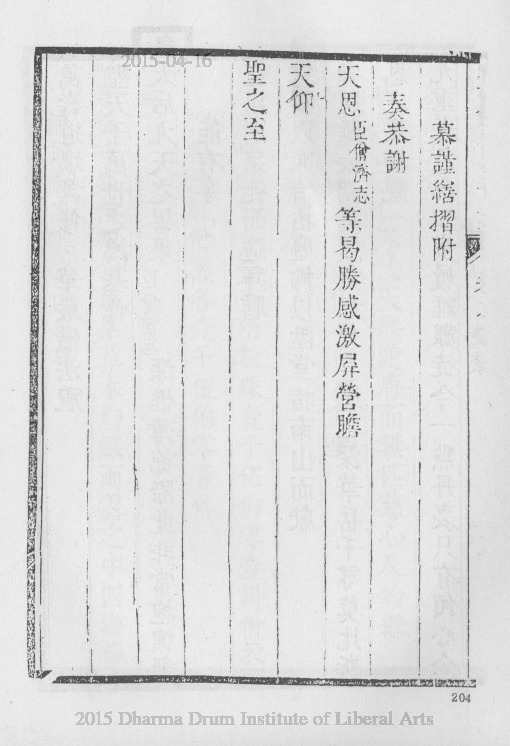 慕謹繕摺附
奏恭謝
天恩臣僧濟志等曷勝感激屏營瞻
天仰
聖之至
2015-04-16
204
2015 Dharma Drum Institute of Liberal Arts